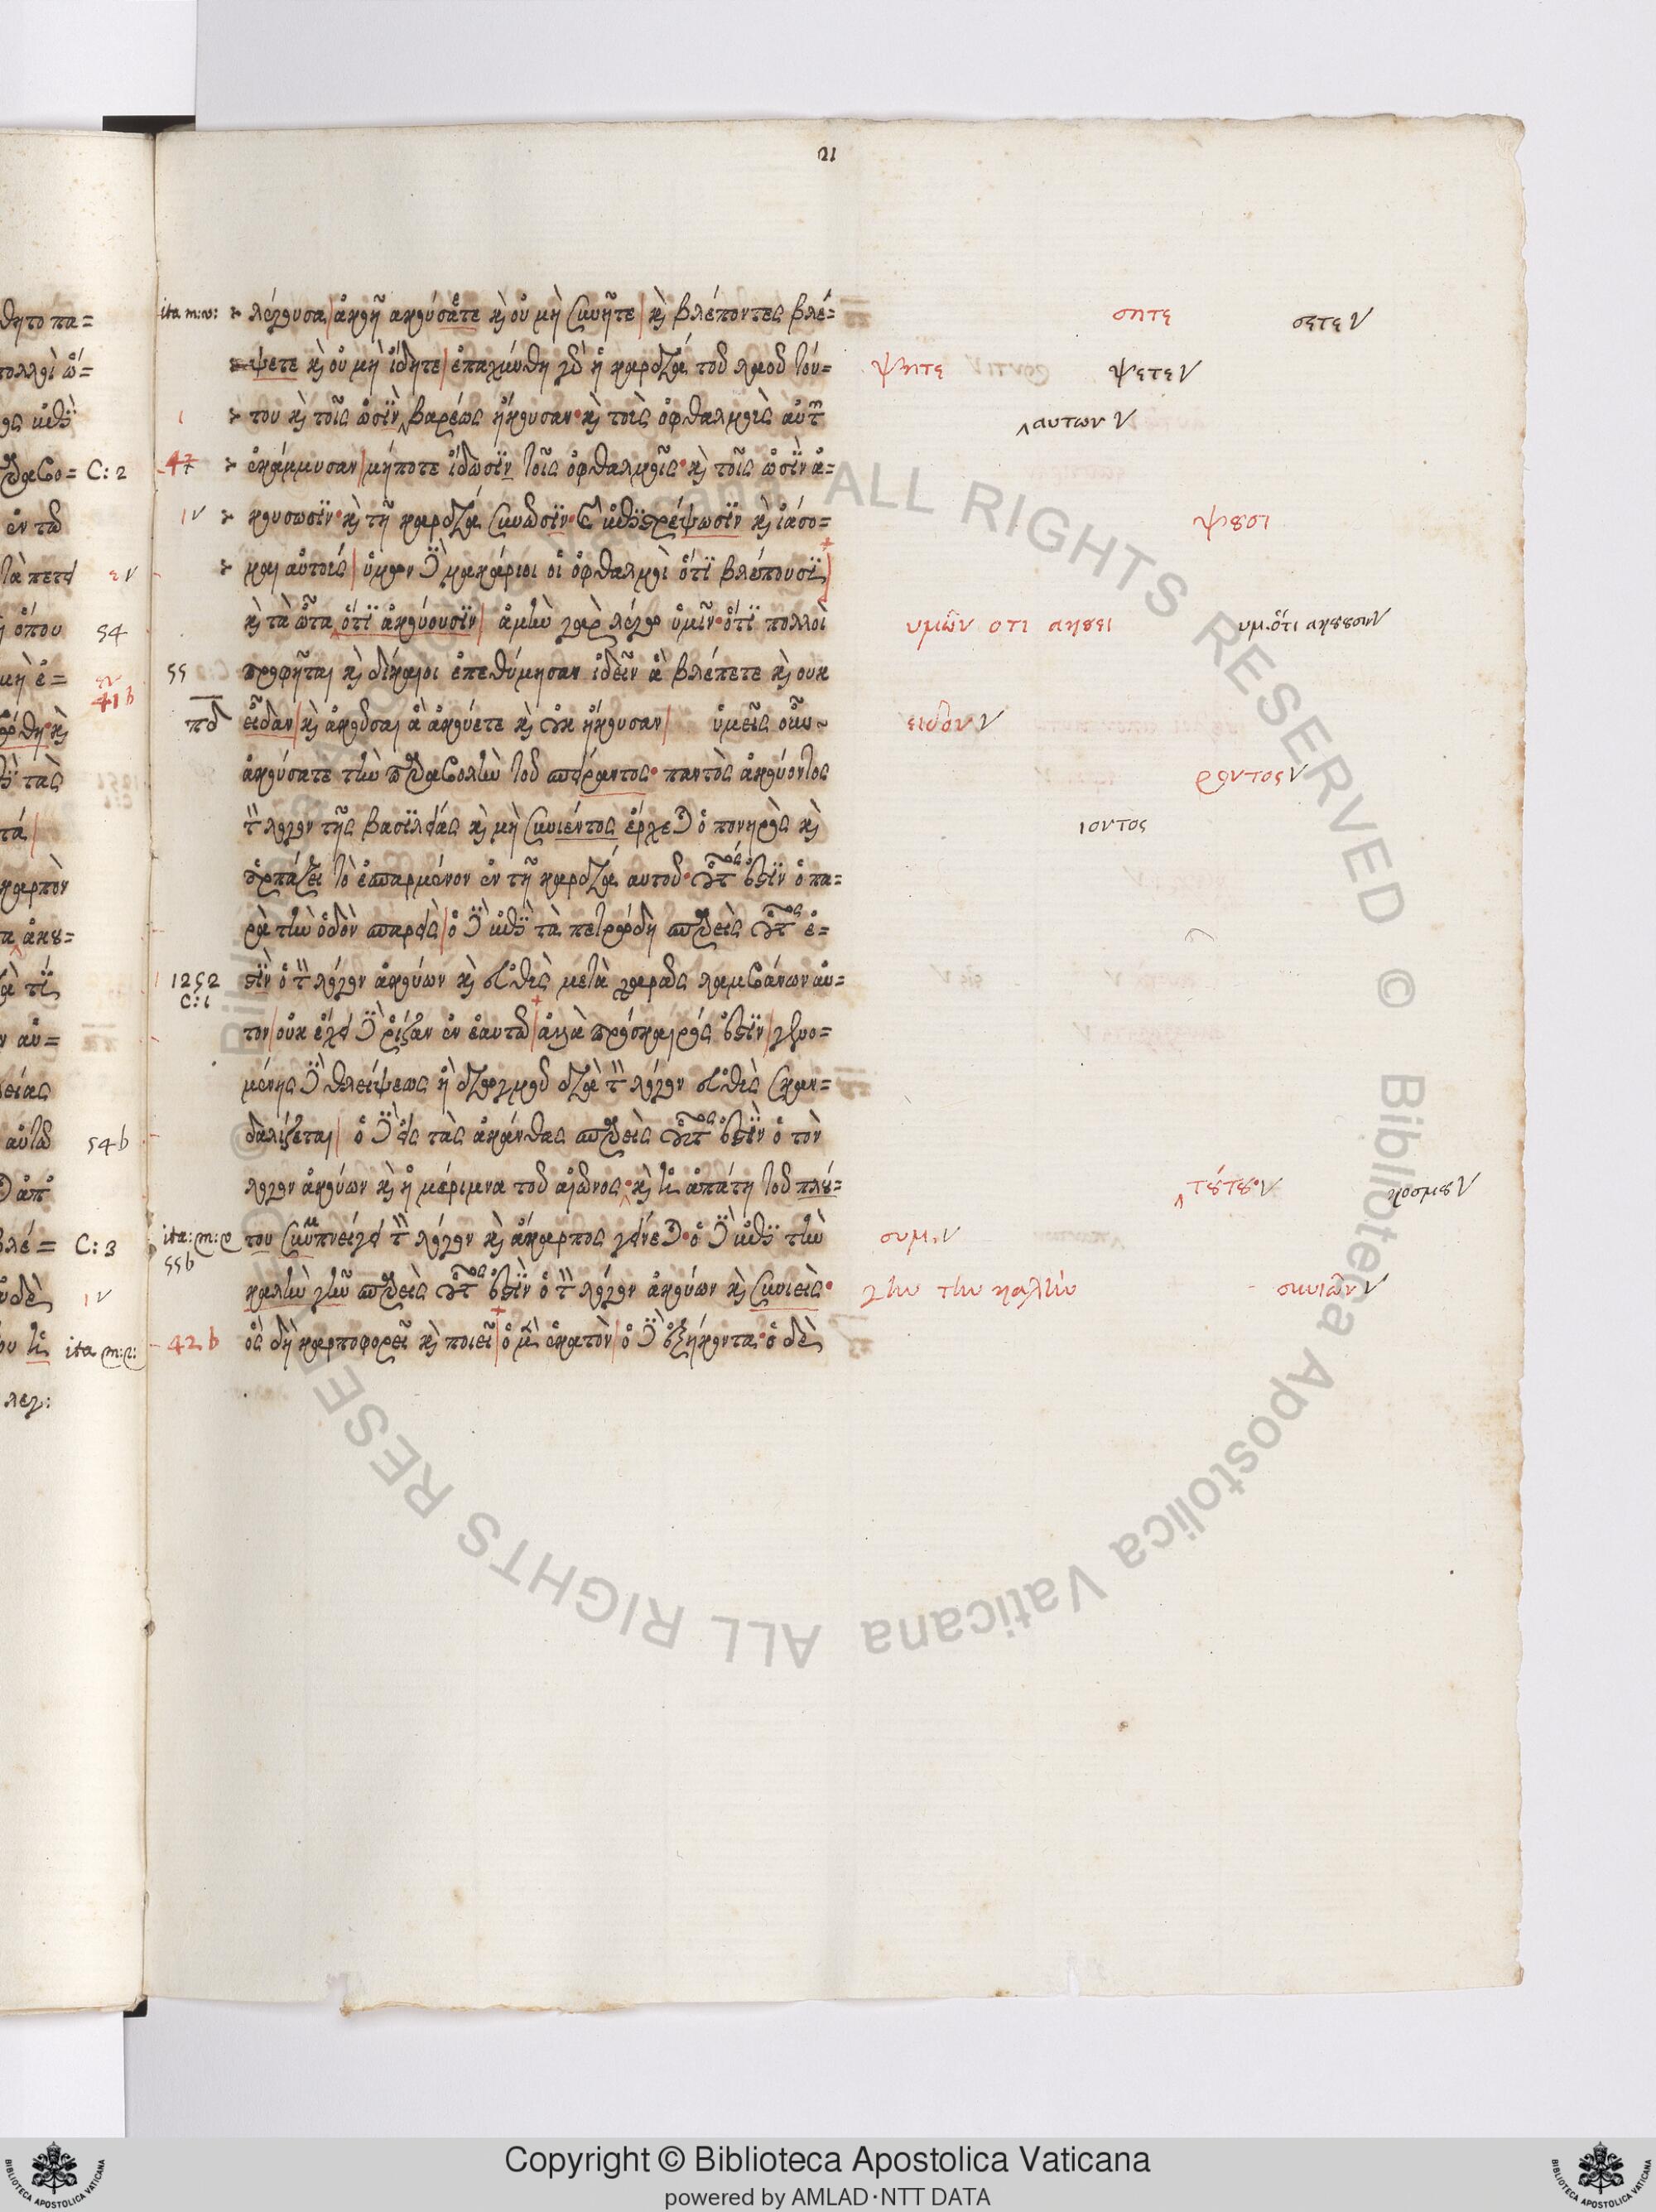 21
ita m:o: λέγουσα ἀκοῇ ἀκούσατε κὶ οὐ μὴ συνῆτε κὶ βλέποντες βλέ=
ψετε κὶ οὐ μὴ ἴδητε ἐπαχύνθη γὰρ ἡ καρδία τοῦ λαοῦ τού=
του κὶ τοῖς ὠσὶν βαρέως ἤκουσαν κὶ τοὺς ὀφθαλμοὺς αὐτῶν
ἐκάμμυσαν μήποτε ἴδωσϊν τοῖς ὀφθαλμοῖς κὶ τοῖς ὠσϊν ἀ=
κουσωσϊν κὶ τῇ καρδία συνῶσϊν κὶ ἐπϊστρέψωσϊν κὶ ἰάσο=
μαι αὐτοὺς ὑμῶν δὲ μακάριοι οἱ ὀφθαλμοὶ ὅτϊ βλέπουσϊ
κὶ τὰ ὦτα ὅτϊ ἀκούουσϊν ἀμὴν γὰρ λέγω ὑμῖν ὅτϊ πολλοὶ
55 προφῆται κὶ δίκαιοι ἐπεθύμησαν ἰδεῖν ἃ βλέπετε κὶ ουκ
πδ εἶδαν κὶ ἀκοῦσαι ἃ ἀκούετε κὶ οὐκ ἤκουσαν ὑμεῖς οὖν
ἀκούσατε τὴν παραβολὴν τοῦ σπείραντος παντὸς ἀκούοντος
τὸν λόγον τῆς βασϊλείας κὶ μὴ συνιέντος ἔρχεται ὁ πονηρὸς κὶ
ἁρπάζει τὸ ἐσπαρμένον ἐν τῇ καρδία αυτοῦ οὗτός ἐστϊν ὁ πα=
ρὰ τὴν ὁδὸν σπαρεὶς ὁ δὲ ἐπϊ τὰ πετρώδη σπαρεὶς οὗτος ἐ=
1252 στϊν ὁ τὸν λόγον ἀκούων κὶ εὐθὺς μετὰ χαρᾶς λαμβάνων αὐ=
C:1
τον οὐκ ἔχει δὲ ῥίζαν ἐν ἑαυτῶ ἀλλὰ πρόσκαιρός ἐστϊν γενο=
μένης δὲ θλείψεως ἢ διωγμοῦ διὰ τὸν λόγον εὐθὺς σκαν=
δαλίζεται ὁ δὲ εἰς τὰς ἀκάνθας σπαρεὶς οὗτός ἐστϊν ὁ τὸν
λόγον ἀκούων κὶ ἡ μέριμνα τοῦ αἰῶνος κὶ ἡ ἀπάτη τοῦ πλού=
ita: m:o του συμπνείγει τὸν λόγον κὶ ἄκαρπος γείνεται ὁ δὲ ἐπϊ τὴν
55b
καλὴν γῆν σπαρεὶς οὗτός ἐστϊν ὁ τὸν λόγον ἀκούων κὶ συνιεὶς
42b ὃς δὴ καρποφορεῖ κὶ ποιεῖ ὁ μὲν ἑκατὸν ὁ δὲ ἑξήκοντα ὁ δὲ
σητε σετε V
ψητε ψετε V
αυτων V
ψουσι
υμῶν οτι ακουει υμ. ὅτι ακουουσιν V
ειδον V
ροντος V
ιοντος
τούτου V κοσμου V
συμ. V
γην την καλήν συνιῶν V
C:2
54
41b
54b
C:3
ita m:o:
λεγ:
© Biblioteca Apostolica Vaticana ALL RIGHTS RESERVED
Copyright © Biblioteca Apostolica Vaticana
powered by AMLAD·NTT DATA
BIBLIOTECA APOSTOLICA VATICANA
BIBLIOTECA APOSTOLICA VATICANA